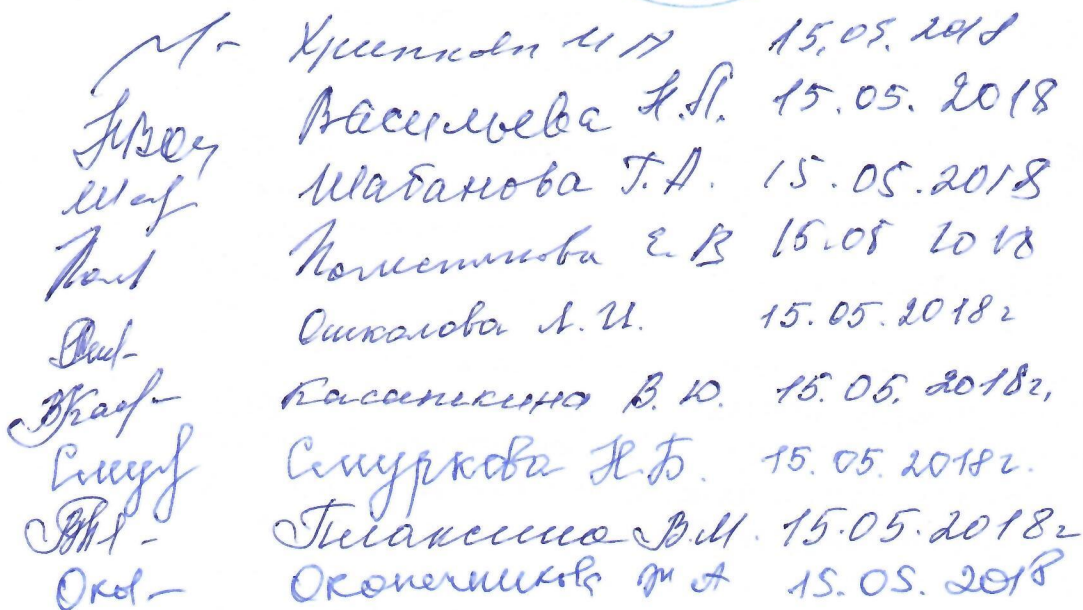 Хрипкова И А 15.05.2018
Васильева Н.П. 15.05.2018
Шабанова Т.А. 15.05.2018
Е.В 15.05 2018
Ошколова Л.И. 15.05.2018г
Касаткина В.Ю. 15.05.2018г.
Смуркова Н.Б. 15.05.2018г.
Плаксина В.М. 15.05.2018г
Оконечникова А 15.05.2018